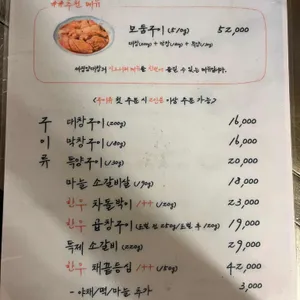 추천 메뉴
모둠구이 (510g) 52,000
대창(200g) + 막창(180g) + 특양(130g)
<구이류 첫 주문 시 2인분 이상 주문 가능>
구 대창구이 (200g) 16,000
이 막창구이 (180g) 16,000
류 특양구이 (130g) 20,000
마늘 소갈비살 (190g) 18,000
한우 차돌박이 1++ (120g) 23,000
한우 곱창구이 (초벌 전 250g / 초벌 후 120g) 19,000
특제 소갈비 (220g) 29,000
한우 채끝등심 1++ (150g) 42,000
- 야채/떡/마늘 추가 3,000